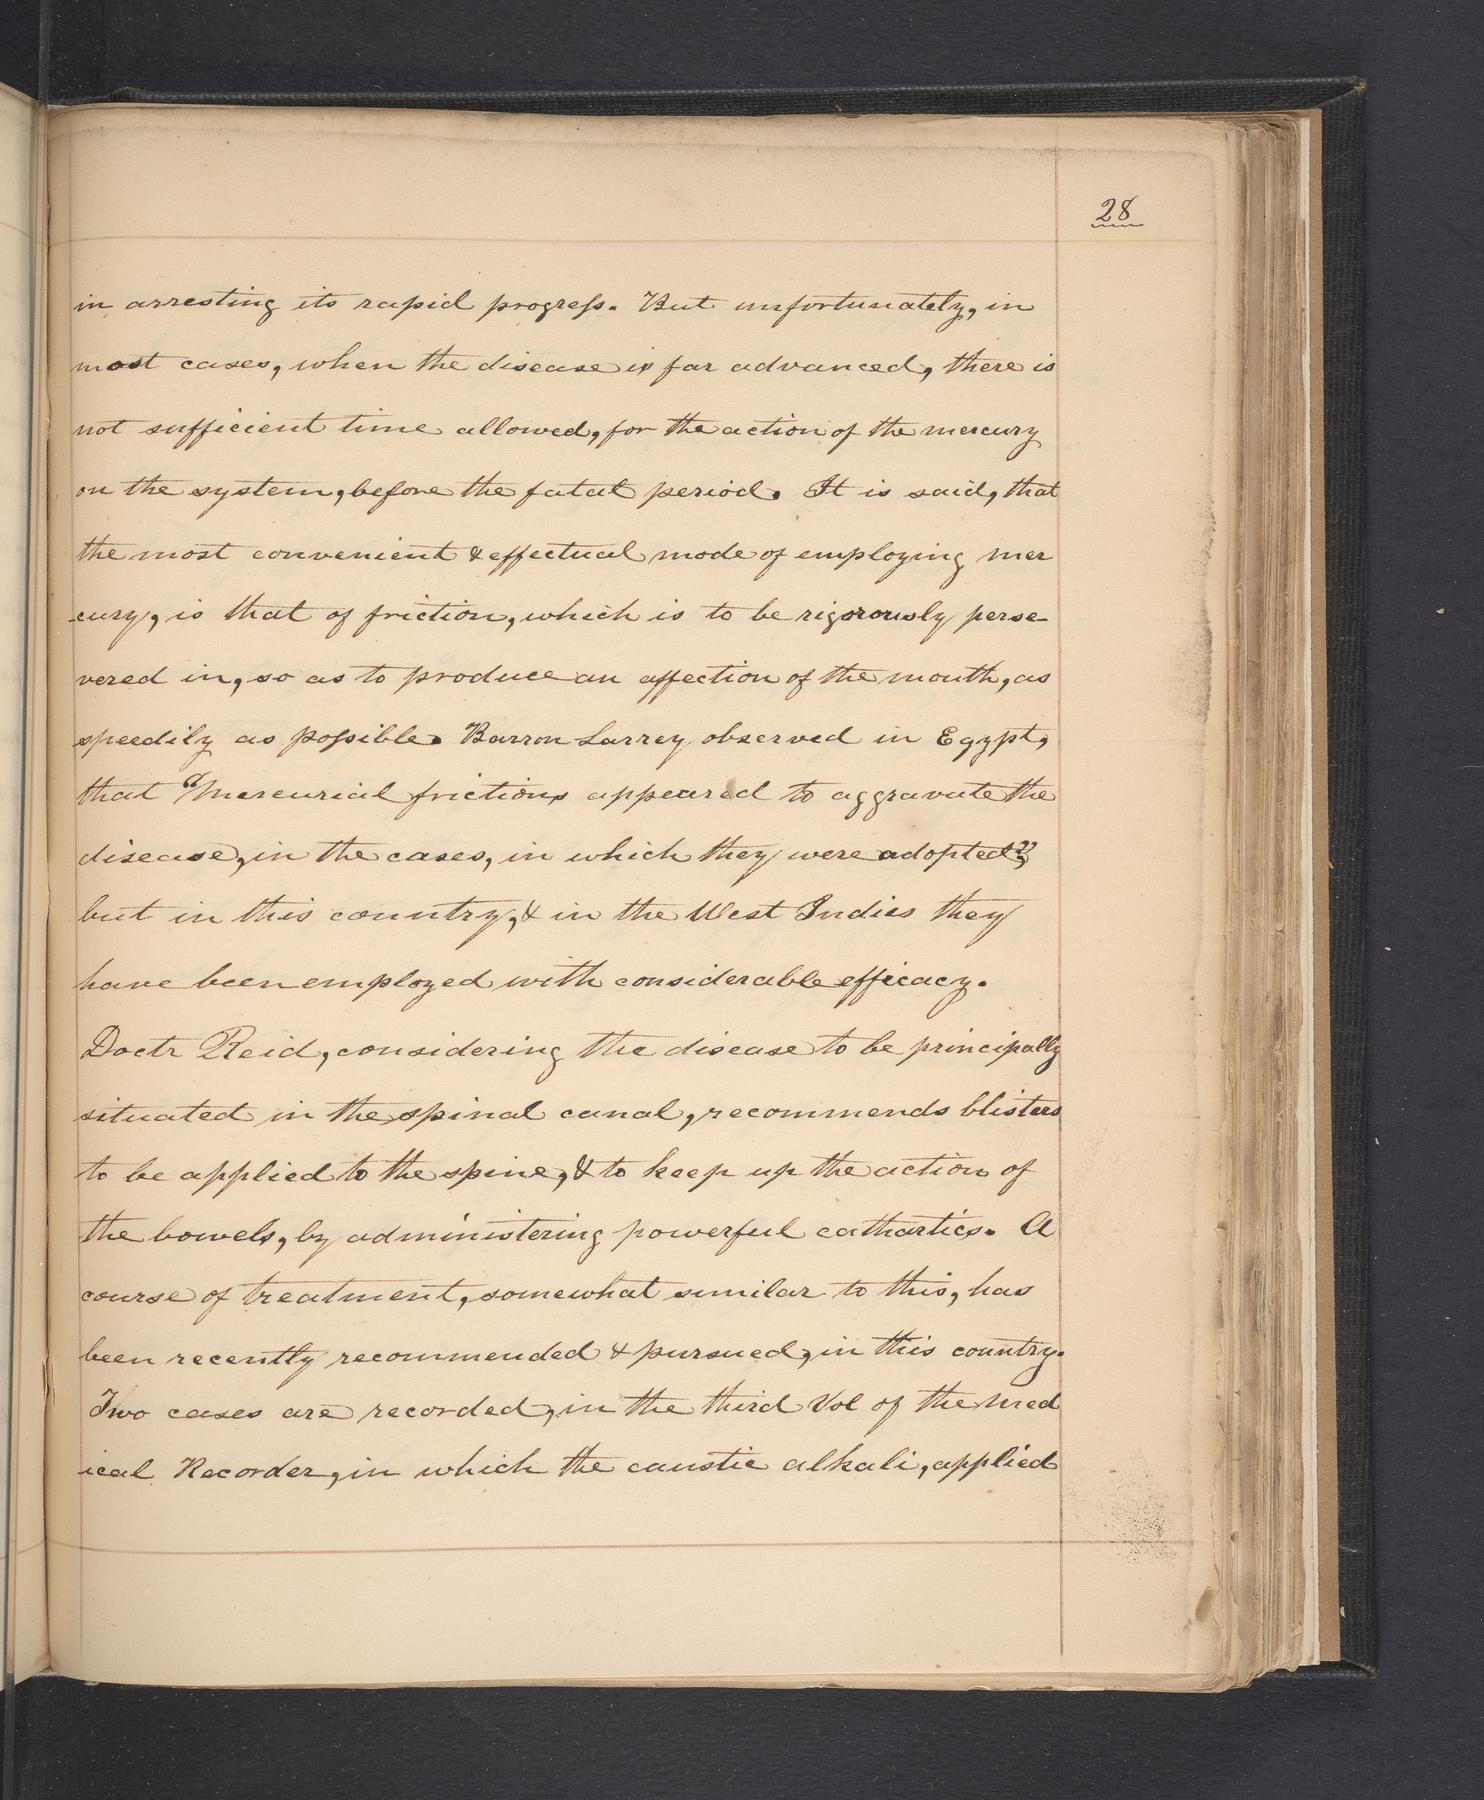 28
in arresting its rapid progress. But unfortunately, in
most cases, when the disease is far advanced, there is
not sufficient time allowed, for the action of the mercury
on the system, before the fatal period. It is said, that
the most convenient & effectual mode of employing mer
-cury, is that of friction, which is to be rigorously perse-
vered in, so as to produce an affection of the mouth, as
speedily as possible. Barron Larrey observed in Egypt,
that "Mercurial frictions appeared to aggravate the
disease, in the cases, in which they were adopted";
but in this country, & in the West Indies they
have been employed with considerable efficacy.
Doctr Reid, considering the disease to be principally
situated in the spinal canal, recommends blisters
to be applied to the spine, & to keep up the action of
the bowels, by administering powerful cathartics. A
course of treatment, somewhat similar to this, has
been recently recommended & pursued, in this country.
Two cases are recorded, in the third Vol of the Med
ical Recorder, in which the caustic alkali, applied